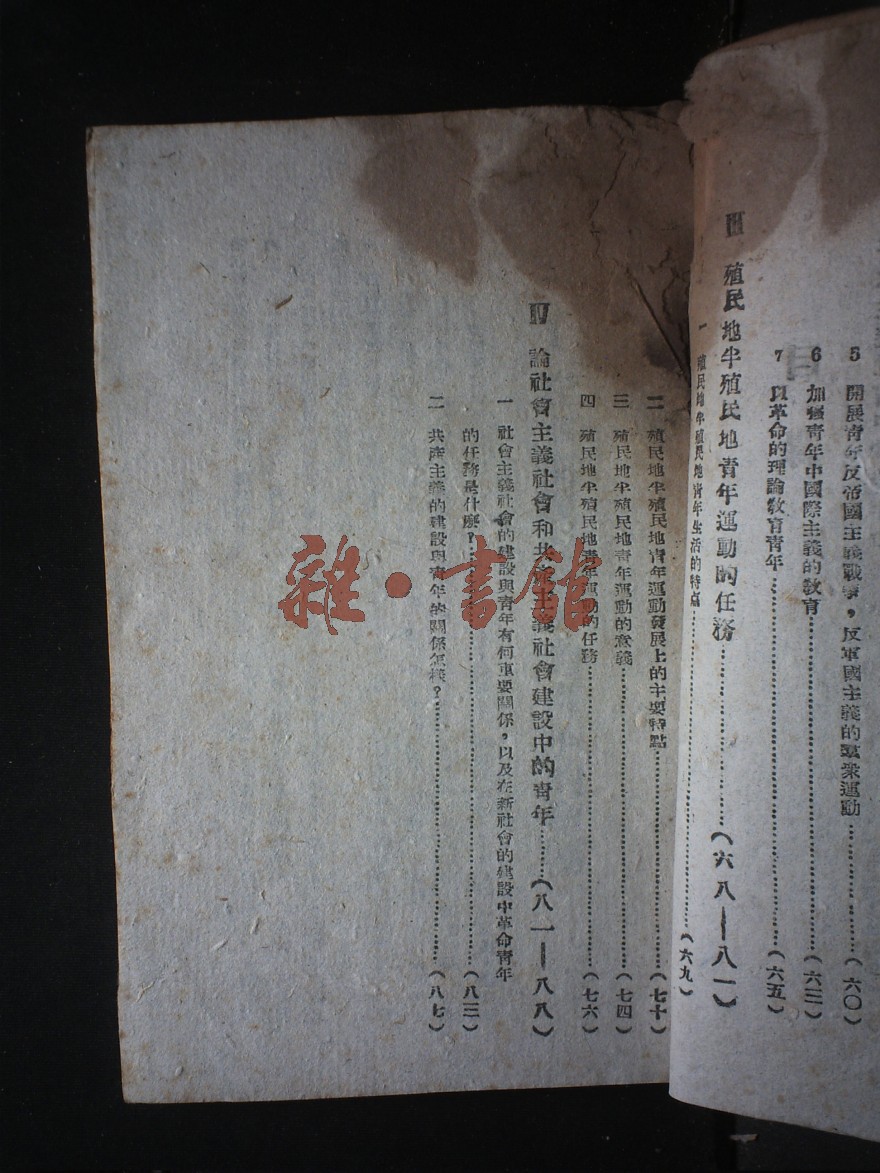 5 開展青年反帝國主義戰爭，反軍國主義的羣衆運動……(六〇)
6 加強青年中國際主義的敎育……(六三)
7 以革命的理論敎育靑年……(六五)
Ⅲ 殖民地半殖民地靑年運動的任務……(六八—八一)
一 殖民地半殖民地靑年生活的特點……(六九)
二 殖民地半殖民地靑年運動發展上的主要特點……(七十)
三 殖民地半殖民地靑年運動的意義……(七四)
四 殖民地半殖民地靑年運動的任務……(七六)
Ⅳ 論社會主義社會和共產主義社會建設中的靑年……(八一—八八)
一 社會主義社會的建設與靑年有何重要關係，以及在新社會的建設中革命靑年
的任務是什麽？……(八三)
二 共產主義的建設與靑年的關係怎樣？……(八七)
雜·書館